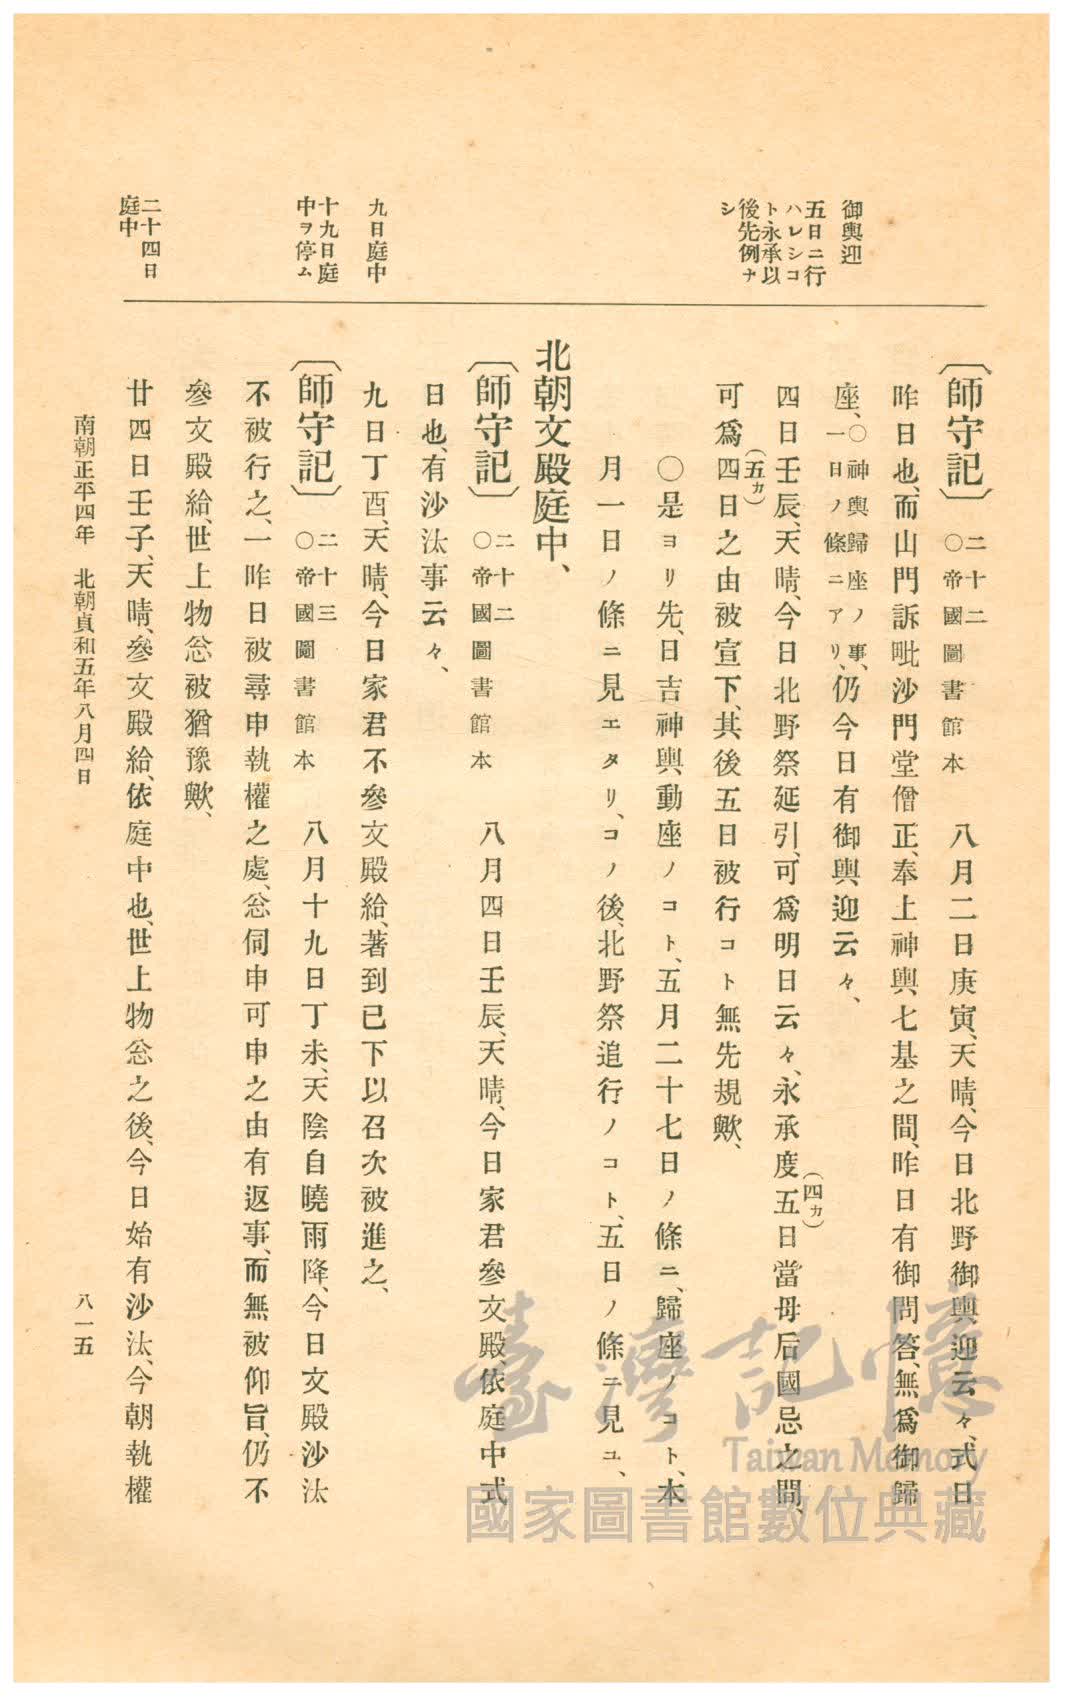 御輿迎
五日ニ行
ハレシコ
ト永承以
後先例ナ
シ
九日庭中
十九日庭
中ヲ停ム
二十四日
庭中
〔師守記〕 二十二 ○帝國圖書館本 八月二日庚寅、天晴、今日北野御輿迎云々、式日
昨日也、而山門訴毗沙門堂僧正、奉上神輿七基之間、昨日有御問答、無爲御歸
座、○神輿歸座ノ事、一日ノ條ニアリ、仍今日有御輿迎云々、
四日壬辰、天晴、今日北野祭延引、可爲明日云々、永承度五(四カ)日當母后國忌之間、
可爲四(五カ)日之由被宣下、其後五日被行コト無先規歟、
○是ヨリ先、日吉神輿動座ノコト、五月二十七日ノ條ニ、歸座ノコト、本
月一日ノ條ニ見エタリ、コノ後、北野祭追行ノコト、五日ノ條ニ見ユ、
北朝文殿庭中、
〔師守記〕 二十二 ○帝國圖書館本 八月四日壬辰、天晴、今日家君參文殿、依庭中式
日也、有沙汰事云々、
九日丁酉、天晴、今日家君不參文殿給、著到已下以召次被進之、
〔師守記〕 二十三 ○帝國圖書館本 八月十九日丁未、天陰自曉雨降、今日文殿沙汰
不被行之、一昨日被尋申執權之處、忩伺申可申之由有返事、而無被仰旨、仍不
參文殿給、世上物忩被猶豫歟、
廿四日壬子、天晴、參文殿給、依庭中也、世上物忩之後、今日始有沙汰、今朝執權
南朝正平四年 北朝貞和五年八月四日
八一五
臺灣記憶
Taiwan Memory
國家圖書館數位典藏